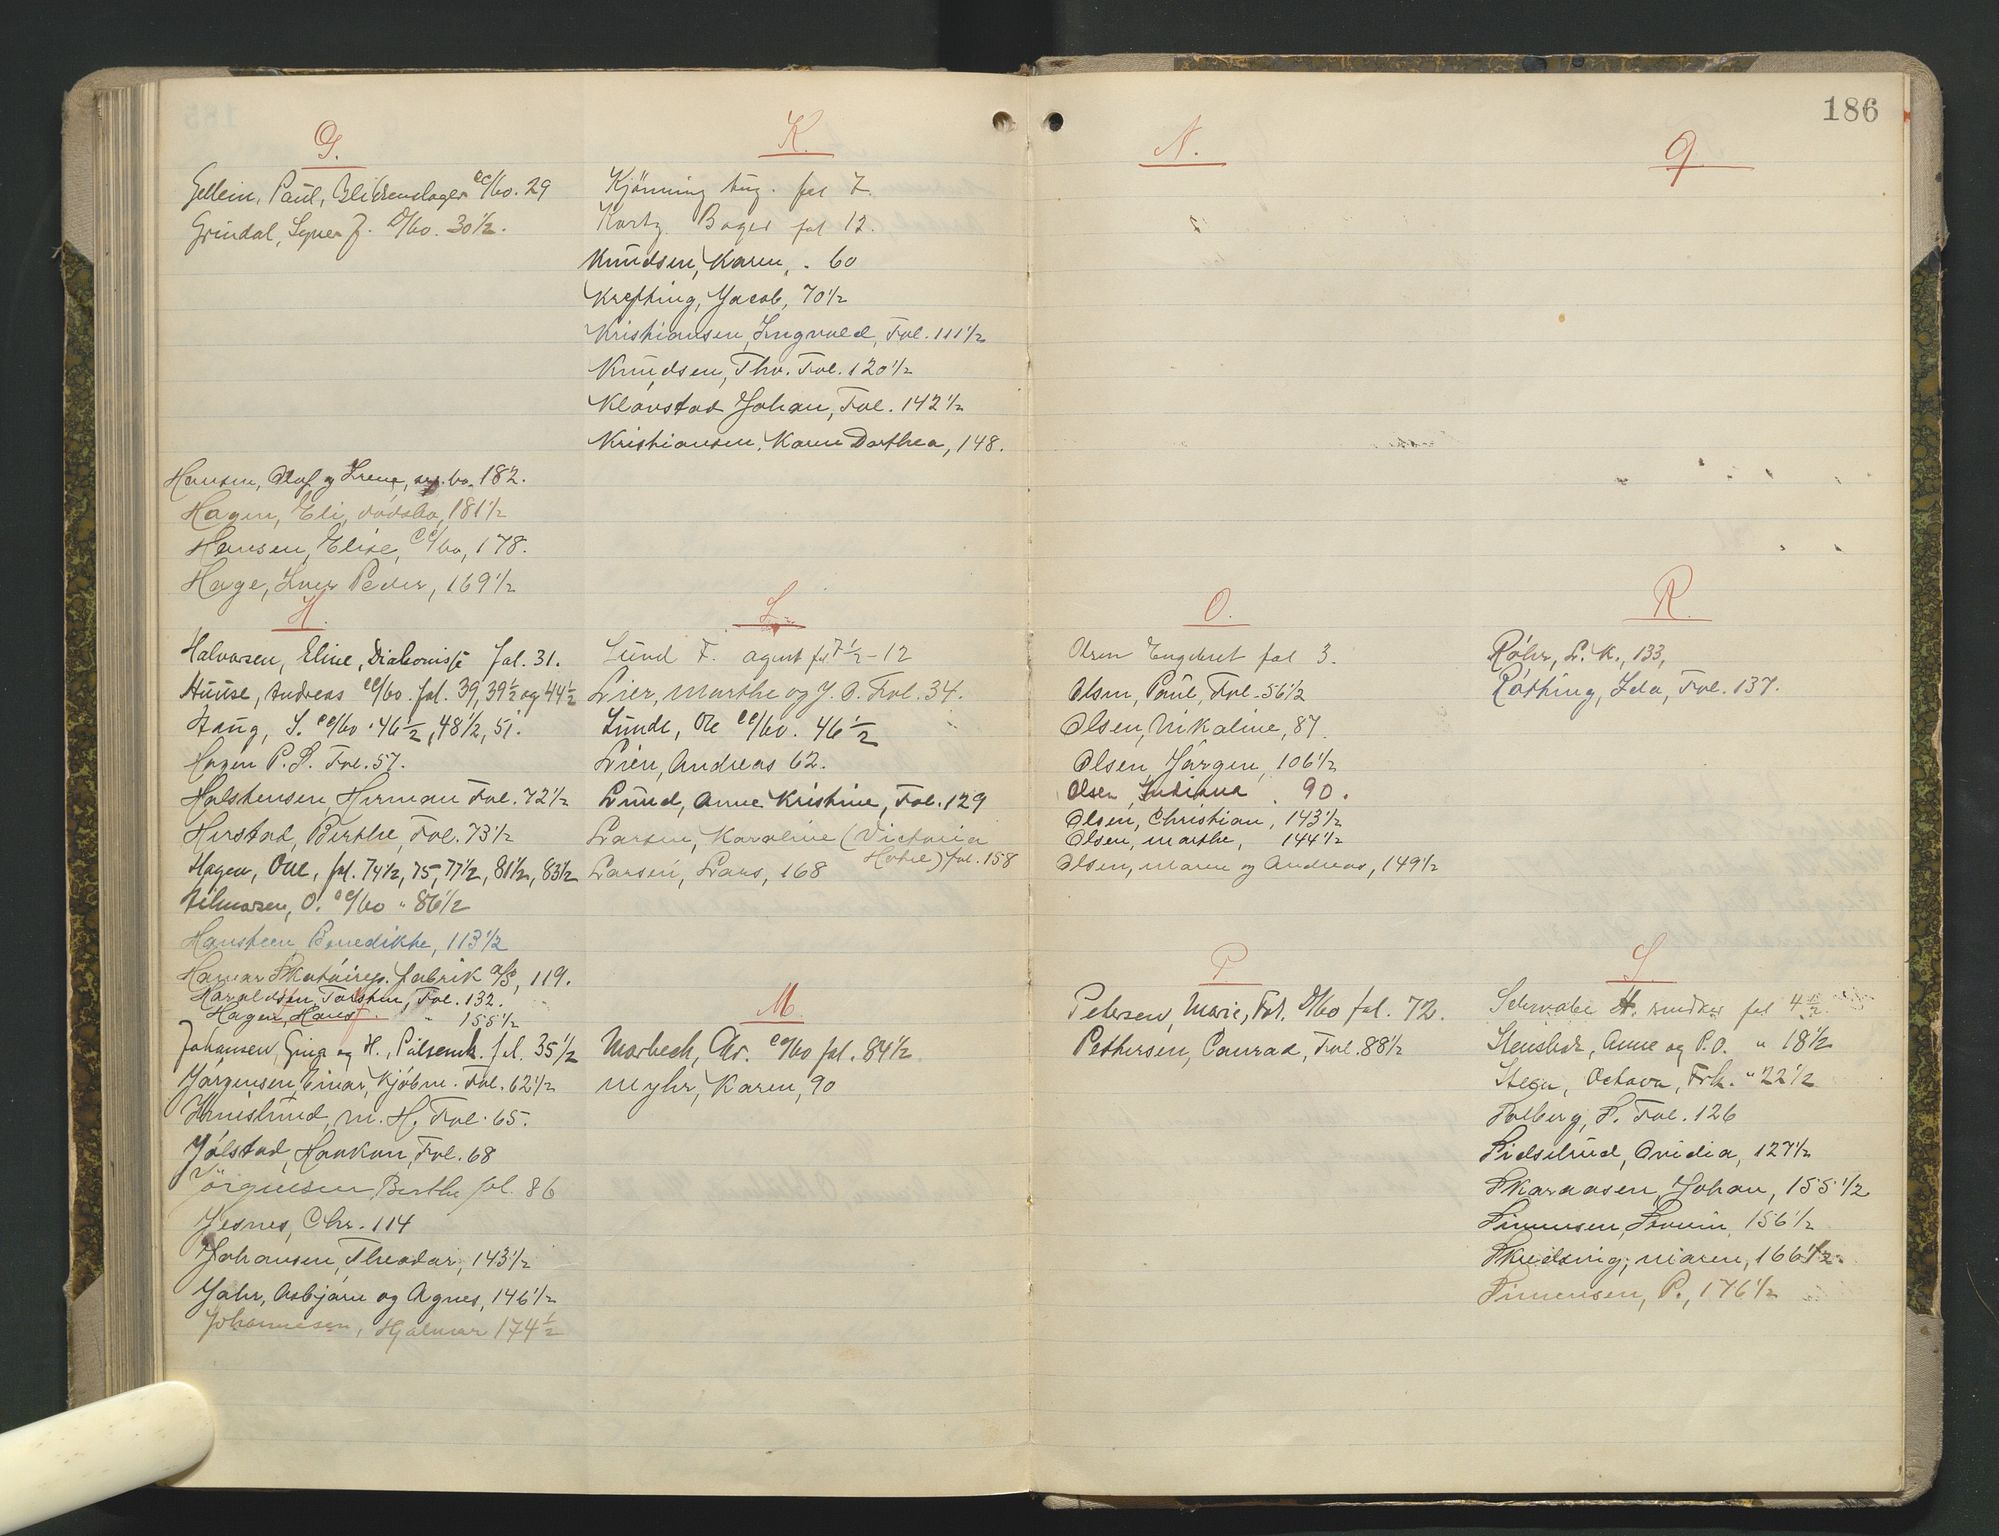 G.
Gellein, Paul, Blikkenslager cc/bo. 29
Grindal, D/bo. 30 1/2.
Hansen, Olaf og bo. 182.
Hagen, Eli, dødsbo, 181 1/2
Hansen, Elise, cc/bo, 178.
Hage, Iver Peder, 169 1/2
H.
Halvorsen, Eline, Diakonisse fol. 31.
Huuse, Andreas cc/bo. fol. 39, 39 1/2 og 44 1/2
Haug, S. cc/bo. 46 1/2, 48 1/2, 51.
Hagen P. S. Fol. 57.
Halstensen, Herman Fol. 72 1/2
Herstad, Berthe, Fol. 73 1/2
Hagen, Ole, fol. 74 1/2, 75, 77 1/2, 81 1/2, 83 1/2
Hilmarsen, O. cc/bo " 86 1/2
Hansteen, Benedikte, 113 1/2
Hamar fabrik a/s, 119.
Haraldsen, Torsten, Fol. 132.
Hagen, Hans " 155 1/2
Johansen, Gina og H., Pølsemk. fol. 35 1/2
Jørgensen, Einar, Kjøbm. Fol. 62 1/2
M. H. Fol. 65.
Jølstad, Haakon, Fol. 68
Jörgensen Berthe fol. 86
Jesnes, Chr. 114
Johansen, Theodor, 143 1/2
Jahr, Asbjørn og Agnes, 146 1/2
Johannesen, Hjalmar 174 1/2
K.
Kjönning Aug. fol 7.
Kortz Bager fol 12.
Knudsen, Karen, . 60
Krefting, Jacob, 70 1/2
Kristiansen, Ingvald, Fol. 111 1/2
Knudsen, Thv. Fol. 120 1/2
Kløvstad Johan, Fol. 142 1/2
Kristiansen, Karen Dorthea, 148.
L.
Lund F. agent fol 7 1/2 - 12
Lier, Marthe og J. O. Fol. 34.
Lunde, Ole cc/bo. 46 1/2
Lien, Andreas 62.
Lund, Anne Kristine, Fol. 129
Larsen, Karoline (Victoria
Hotel) fol. 158
Larsen, Lars, 168
M.
Morbech, Chr. cc/bo fol. 84 1/2
Myhr, Karen, 90
186
N.
O.
Olsen Engebret fol 3.
Olsen, Paul, Fol. 56 1/2
Olsen, Nikoline, 87.
Olsen Jørgen, 106 1/2
Olsen, Indiana . 90.
Olsen, Christian, 143 1/2
Olsen, Marthe, 144 1/2
Olsen, Maren og Andreas, 149 1/2
P.
Petersen, Marie, Frk. D/bo fol. 72.
Pettersen, Conrad, Fol. 88 1/2
Q
R.
Røhr, L. K., 133,
Røthing, Ida, Fol. 137.
S
Schwabe H. fol 4 1/2
Anne og P.O. " 18 1/2
Octava, Frk. " 22 1/2
Solberg, S. Fol. 126
Sidselrud, Ovidia, 127 1/2
Skaraasen, Johan, 155 1/2
Simensen, 156 1/2
Maren, 166 1/2.
Simensen, P., 176 1/2